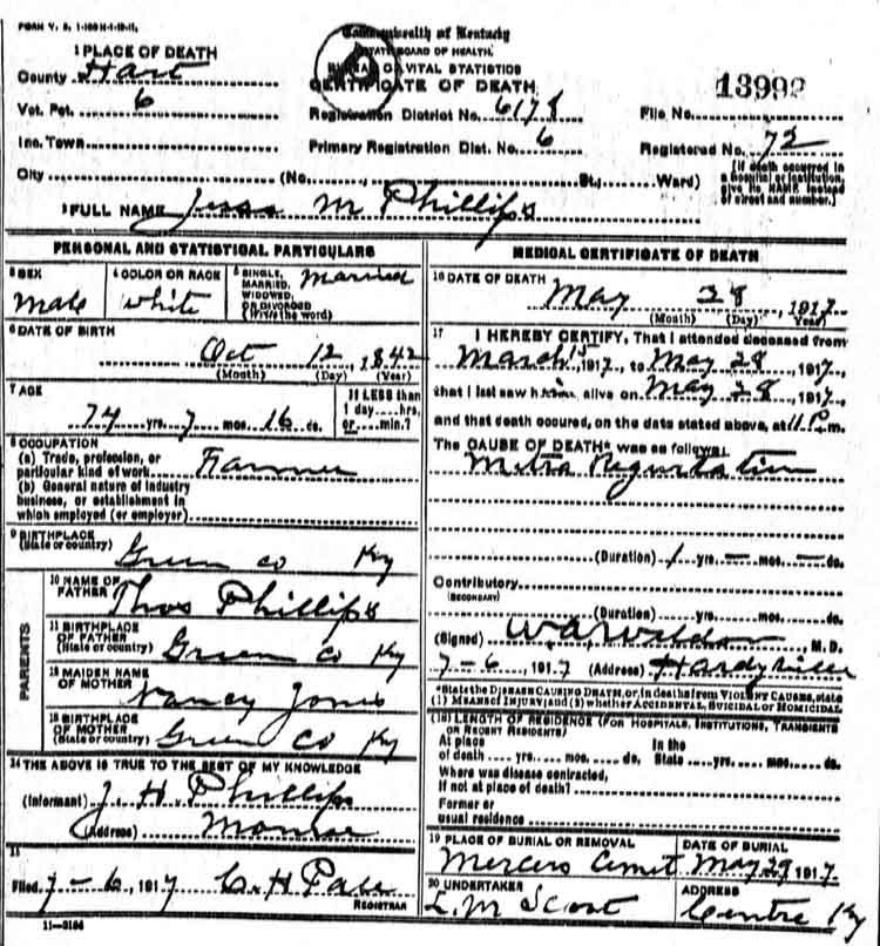 FORM V. S. 1-
Commonwealth of Kentucky
STATE BOARD OF HEALTH
BUREAU OF VITAL STATISTICS
CERTIFICATE OF DEATH
13992
1 PLACE OF DEATH
County Hart
Vot. Pct. 6
Registration District No. 6178
File No.
Inc. Town
Primary Registration Dist. No. 6
Registered No. 72
City (No. , St., Ward)
[If death occurred in a hospital or institution, give its NAME instead of street and number.]
2 FULL NAME Jessa M Phillips
PERSONAL AND STATISTICAL PARTICULARS
3 SEX Male
4 COLOR OR RACE White
5 SINGLE, MARRIED, WIDOWED, OR DIVORCED (Write the word) Married
6 DATE OF BIRTH
Oct 12, 1842
(Month) (Day) (Year)
7 AGE
74 yrs. 7 mos. 16 ds.
If LESS than 1 day....hrs. or....min.?
8 OCCUPATION
(a) Trade, profession, or particular kind of work Farmer
(b) General nature of industry business, or establishment in which employed (or employer)
9 BIRTHPLACE (State or country) Green Co Ky
PARENTS
10 NAME OF FATHER Thos Phillips
11 BIRTHPLACE OF FATHER (State or country) Green Co Ky
12 MAIDEN NAME OF MOTHER Nancy Jones
13 BIRTHPLACE OF MOTHER (State or country) Green Co Ky
14 THE ABOVE IS TRUE TO THE BEST OF MY KNOWLEDGE
(Informant) J. H. Phillips
(Address) Monroe
15
Filed 7-6, 1917 C. H. Pace
REGISTRAR
11-3184
MEDICAL CERTIFICATE OF DEATH
16 DATE OF DEATH
May 28, 1917
(Month) (Day) Year)
17 I HEREBY CERTIFY, That I attended deceased from
March 15 1917, to May 28, 1917,
that I last saw him alive on May 28, 1917,
and that death occured, on the date stated above, at 11 P.m.
The CAUSE OF DEATH* was as follows:
Mitra Regurtation
(Duration) 1 yrs. — mos. — ds.
Contributory
(SECONDARY)
(Duration) yrs. mos. ds.
(Signed) W A Weldon, M.D.
7-6, 1917 (Address) Hardyville
*State the DISEASE CAUSING DEATH, or, in deaths from VIOLENT CAUSES, state (1) MEANS of INJURY; and (2) whether ACCIDENTAL, SUICIDAL or HOMICIDAL
(18) LENGTH OF RESIDENCE (FOR HOSPITALS, INSTITUTIONS, TRANSIENTS OR RECENT RESIDENTS)
At place of death yrs. mos. ds. In the State yrs. mos. ds.
Where was disease contracted, if not at place of death?
Former or usual residence
19 PLACE OF BURIAL OR REMOVAL Mercers Cemet
DATE OF BURIAL May 29 1917.
20 UNDERTAKER L. M Scoot
ADDRESS Centre Ky